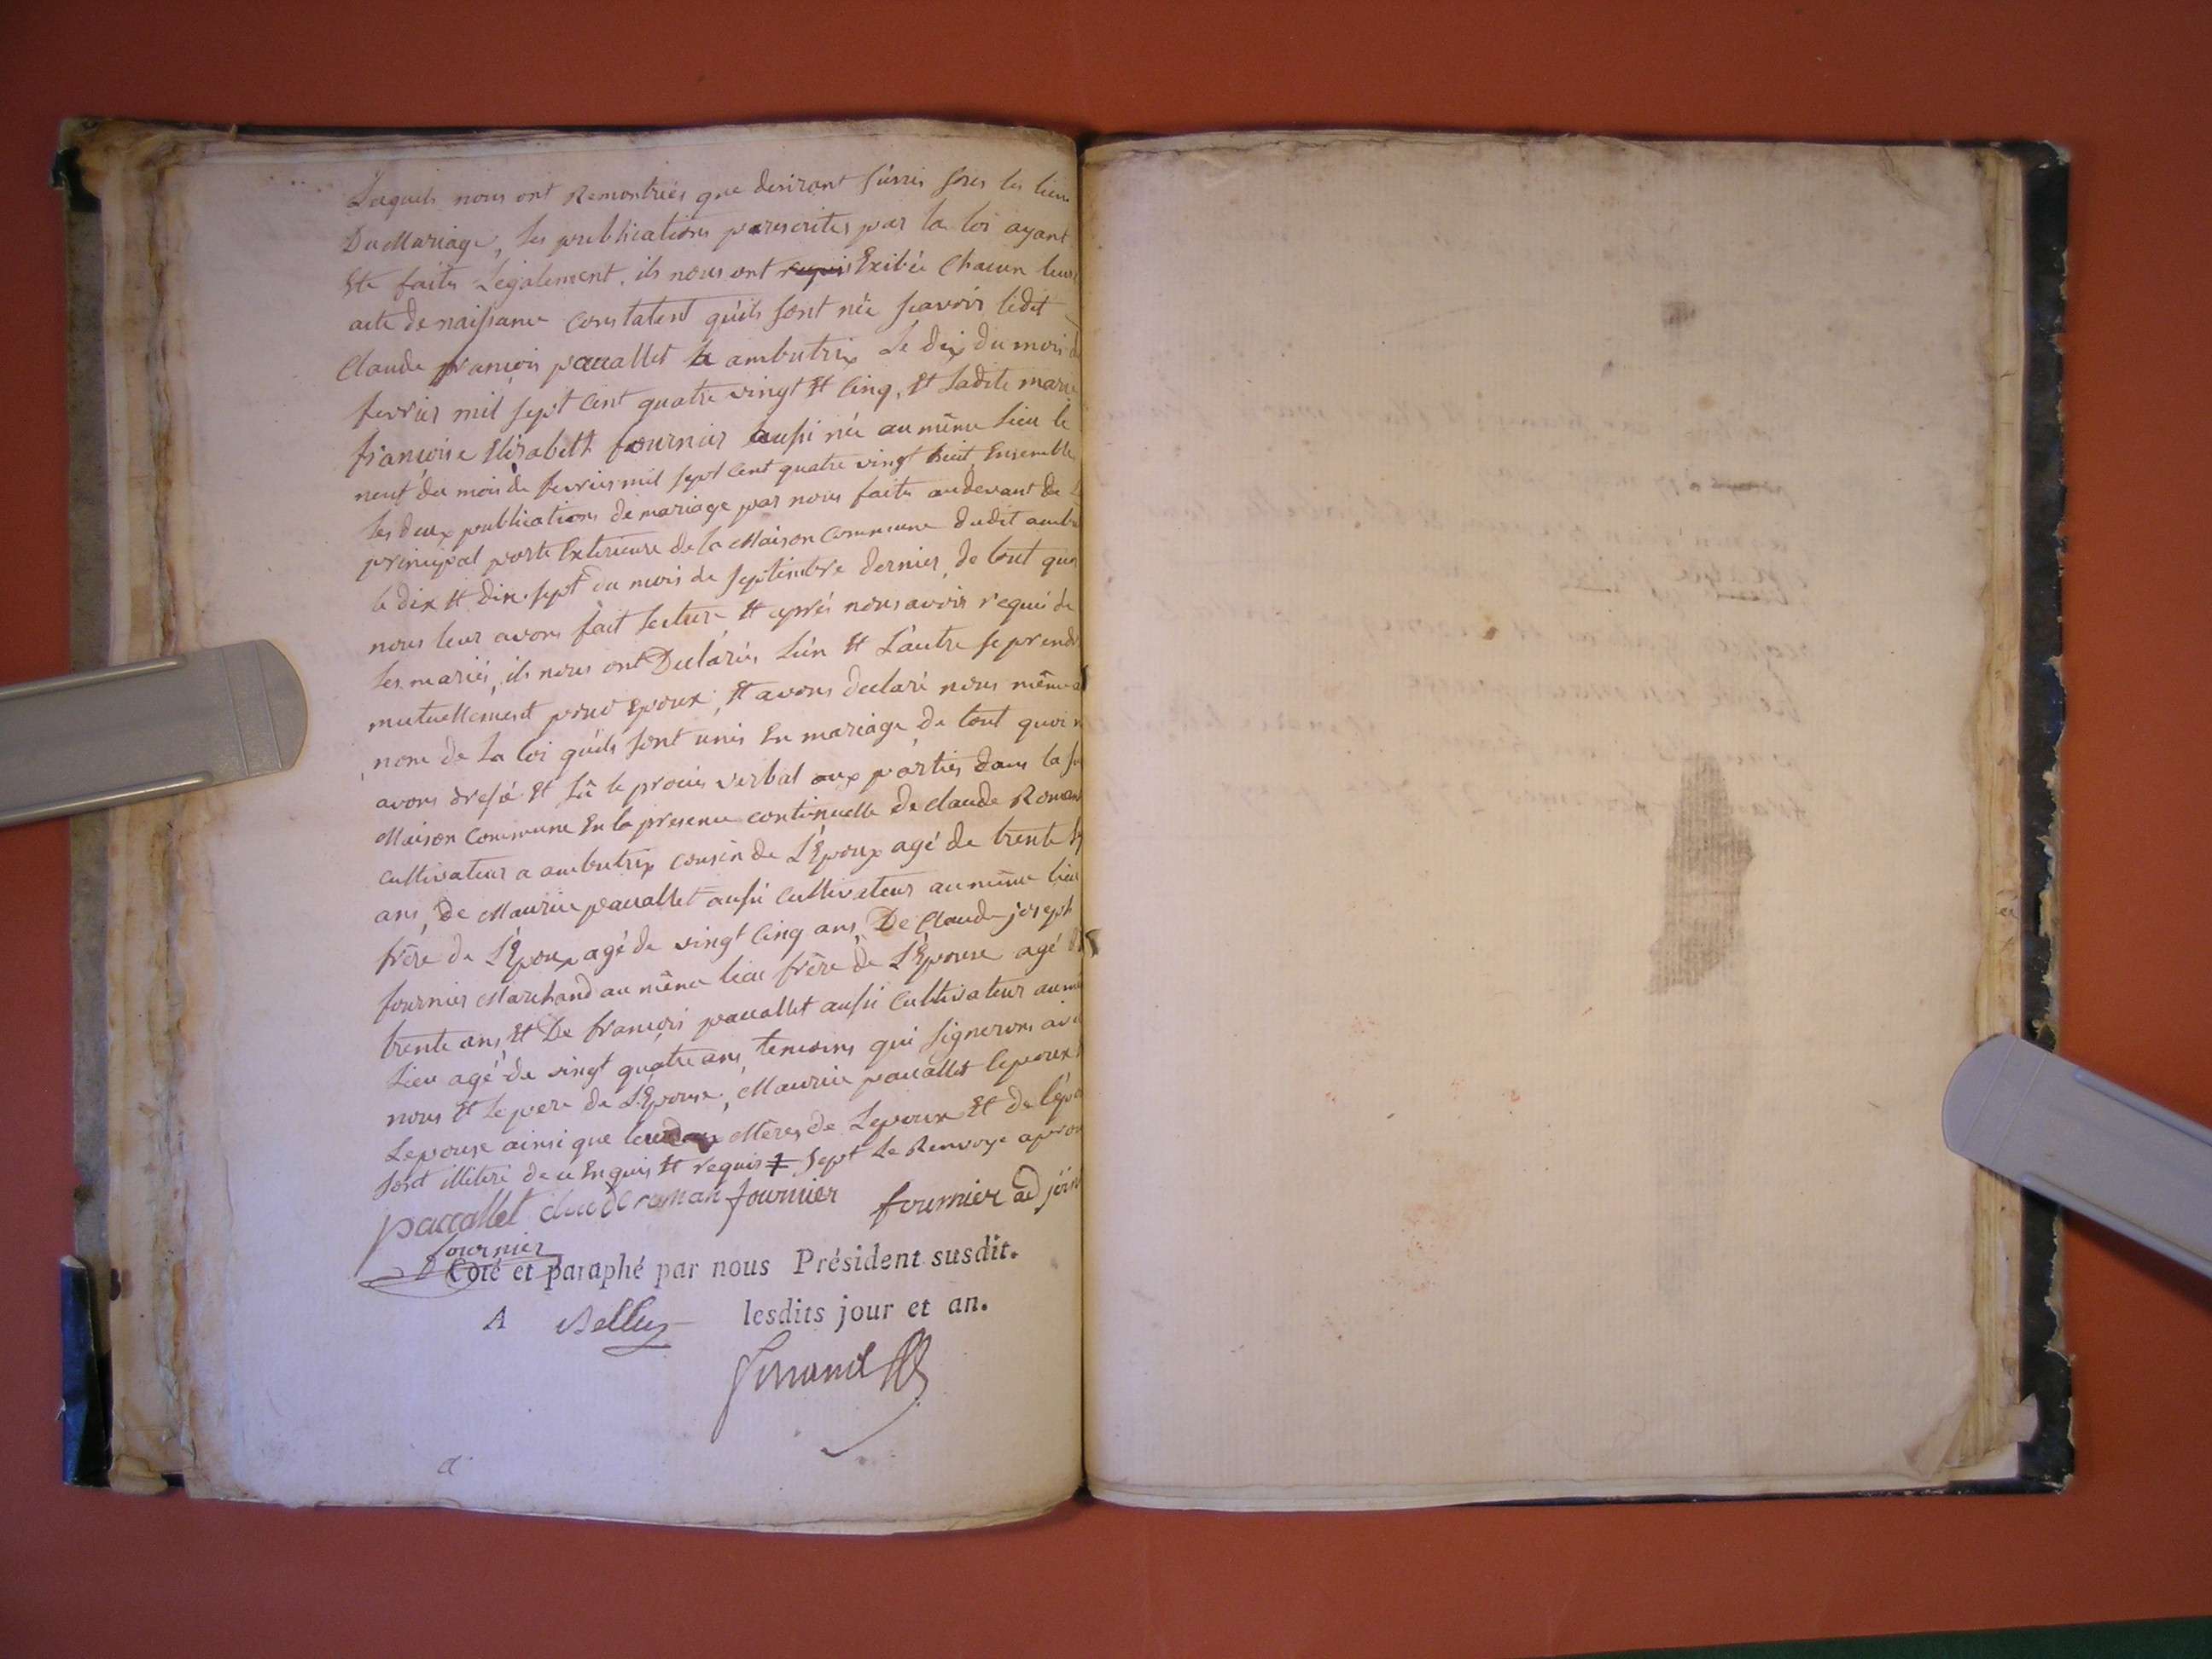 Lesquels nous ont Remontrées que desirant s'unir sous les liens
Du Mariage, les publications prescrites par la loi ayant
Eté faites Légalement. ils nous ont requis Exibée Chacun leurs
acte de naissance constatent qu'ils sont née scavoir ledit
Claude françois paccallet a ambutrix Le dix du mois de
fevrier mil sept cent quatre vingt Et Cinq, Et Ladite marie
françoise Elisabett fournier aussi née au même Lieu le
neuf du mois de fevrier mil sept cent quatre vingt huit, Ensemble
les deux publications de mariage par nous faites au devant de La
principal porte Exterieure de la Maison commune dudit ambu
le dix Et dix-sept du mois de septembre dernier, de tout quoi
nous leur avons fait lecture Et après nous avoir requi de
les mariés, ils nous ont Declarés L'un Et L'autre se prendr
mutuellement pour Epoux, Et avons declaré nous même a
nom de La loi qu'ils sont unis En mariage, de tout quoi n
avons dressé Et Lû le procés verbal aux parties dans la s
Maison commune En la presence continuelle De claude Roman
cultivateur a ambutrix cousin de L'Epoux agé de trente
ans, De Maurice paccallet aussi cultivateur au même lieu
frère de L'Epoux agé de vingt cinq ans, De Claude joseph
fournier Marchand au même lieu frère de L'Epouse agé d
trente ans, Et De françois paccallet aussi Cultivateur au mê
Lieu agé de vingt quatre ans, temoins qui signerons avec
nous Et Le pere de L'Epouse, Maurice paccallet lepoux
Lepouse ainsi que les Mères de Lepoux Et de l'épou
sont illiteré de ce Enquis Et requis ‡ sept Le Renvoye aprou
paccallet claude roman fournier fournier adjoint
fournier
Coté et paraphé par nous Président susdit.
A Belley lesdits jour et an.